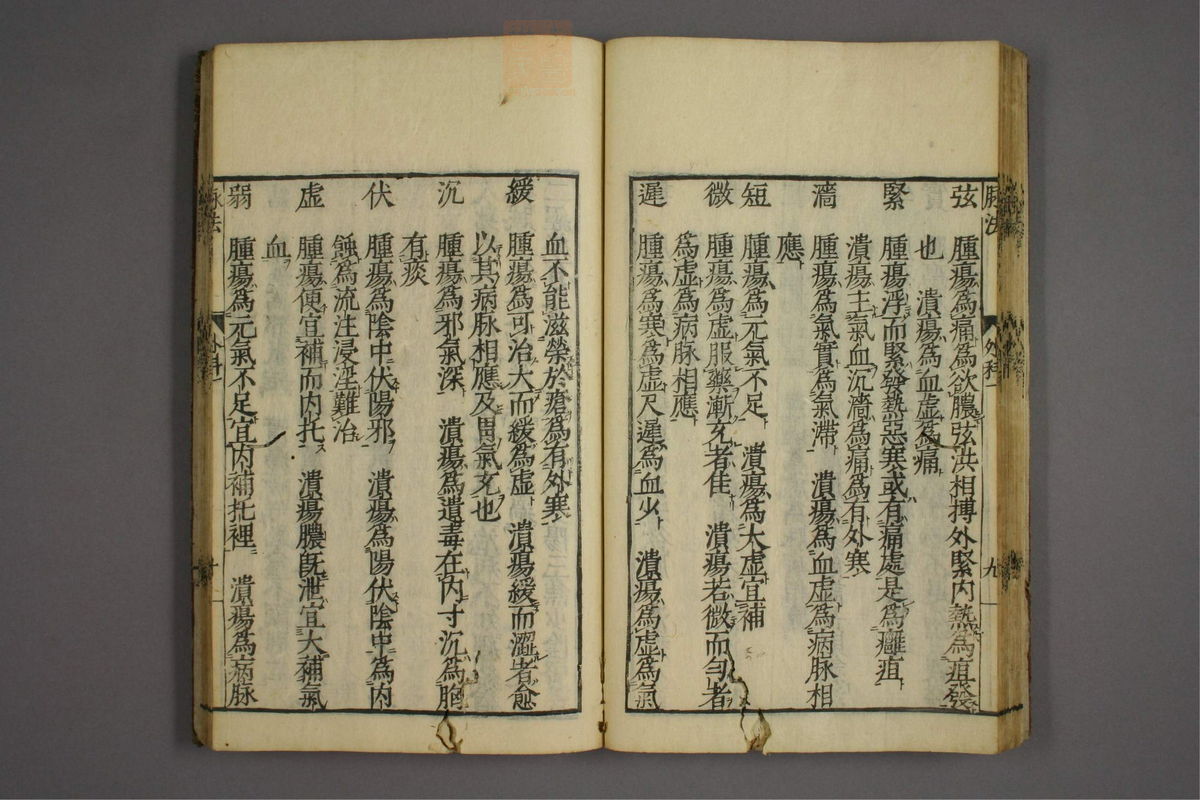 脉法 外科一 九
弦 腫瘍為痛為飲膿弦洪相搏外緊內熱為疽發
也 潰瘍為血虛為痛
緊 腫瘍浮而緊發熱惡寒或有痛處是為癰疽
潰瘍主氣血沉濇為痛為有外寒
濇 腫瘍為氣實為氣滯 潰瘍為血虛為病脉相
應
短 腫瘍為元氣不足 潰瘍為大虛宜補
微 腫瘍為虛服藥漸充者佳 潰瘍若微而勻者
為虛為病脉相應
遲 腫瘍為寒為虛尺遲為血少 潰瘍為虛為氣
血不能滋榮於瘡為有外寒
緩 腫瘍為可治大而緩為虛 潰瘍緩而澀者愈
以其病脉相應及胃氣充也
沉 腫瘍為邪氣深 潰瘍為遺毒在內寸沉為胸
有痰
伏 腫瘍為陰中伏陽邪 潰瘍為陽伏陰中為內
蝕為流注浸淫難治
虛 腫瘍便宜補而內托 潰瘍膿旣泄宜大補氣
血
弱 腫瘍為元氣不足宜內補托裡 潰瘍為病脉
脉法 外科一 十